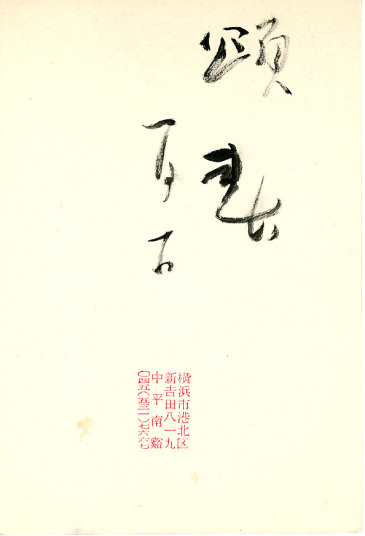 頌春
横浜市港北区
新吉田八一九
中平南谿
〇四五(五三一)七六六七